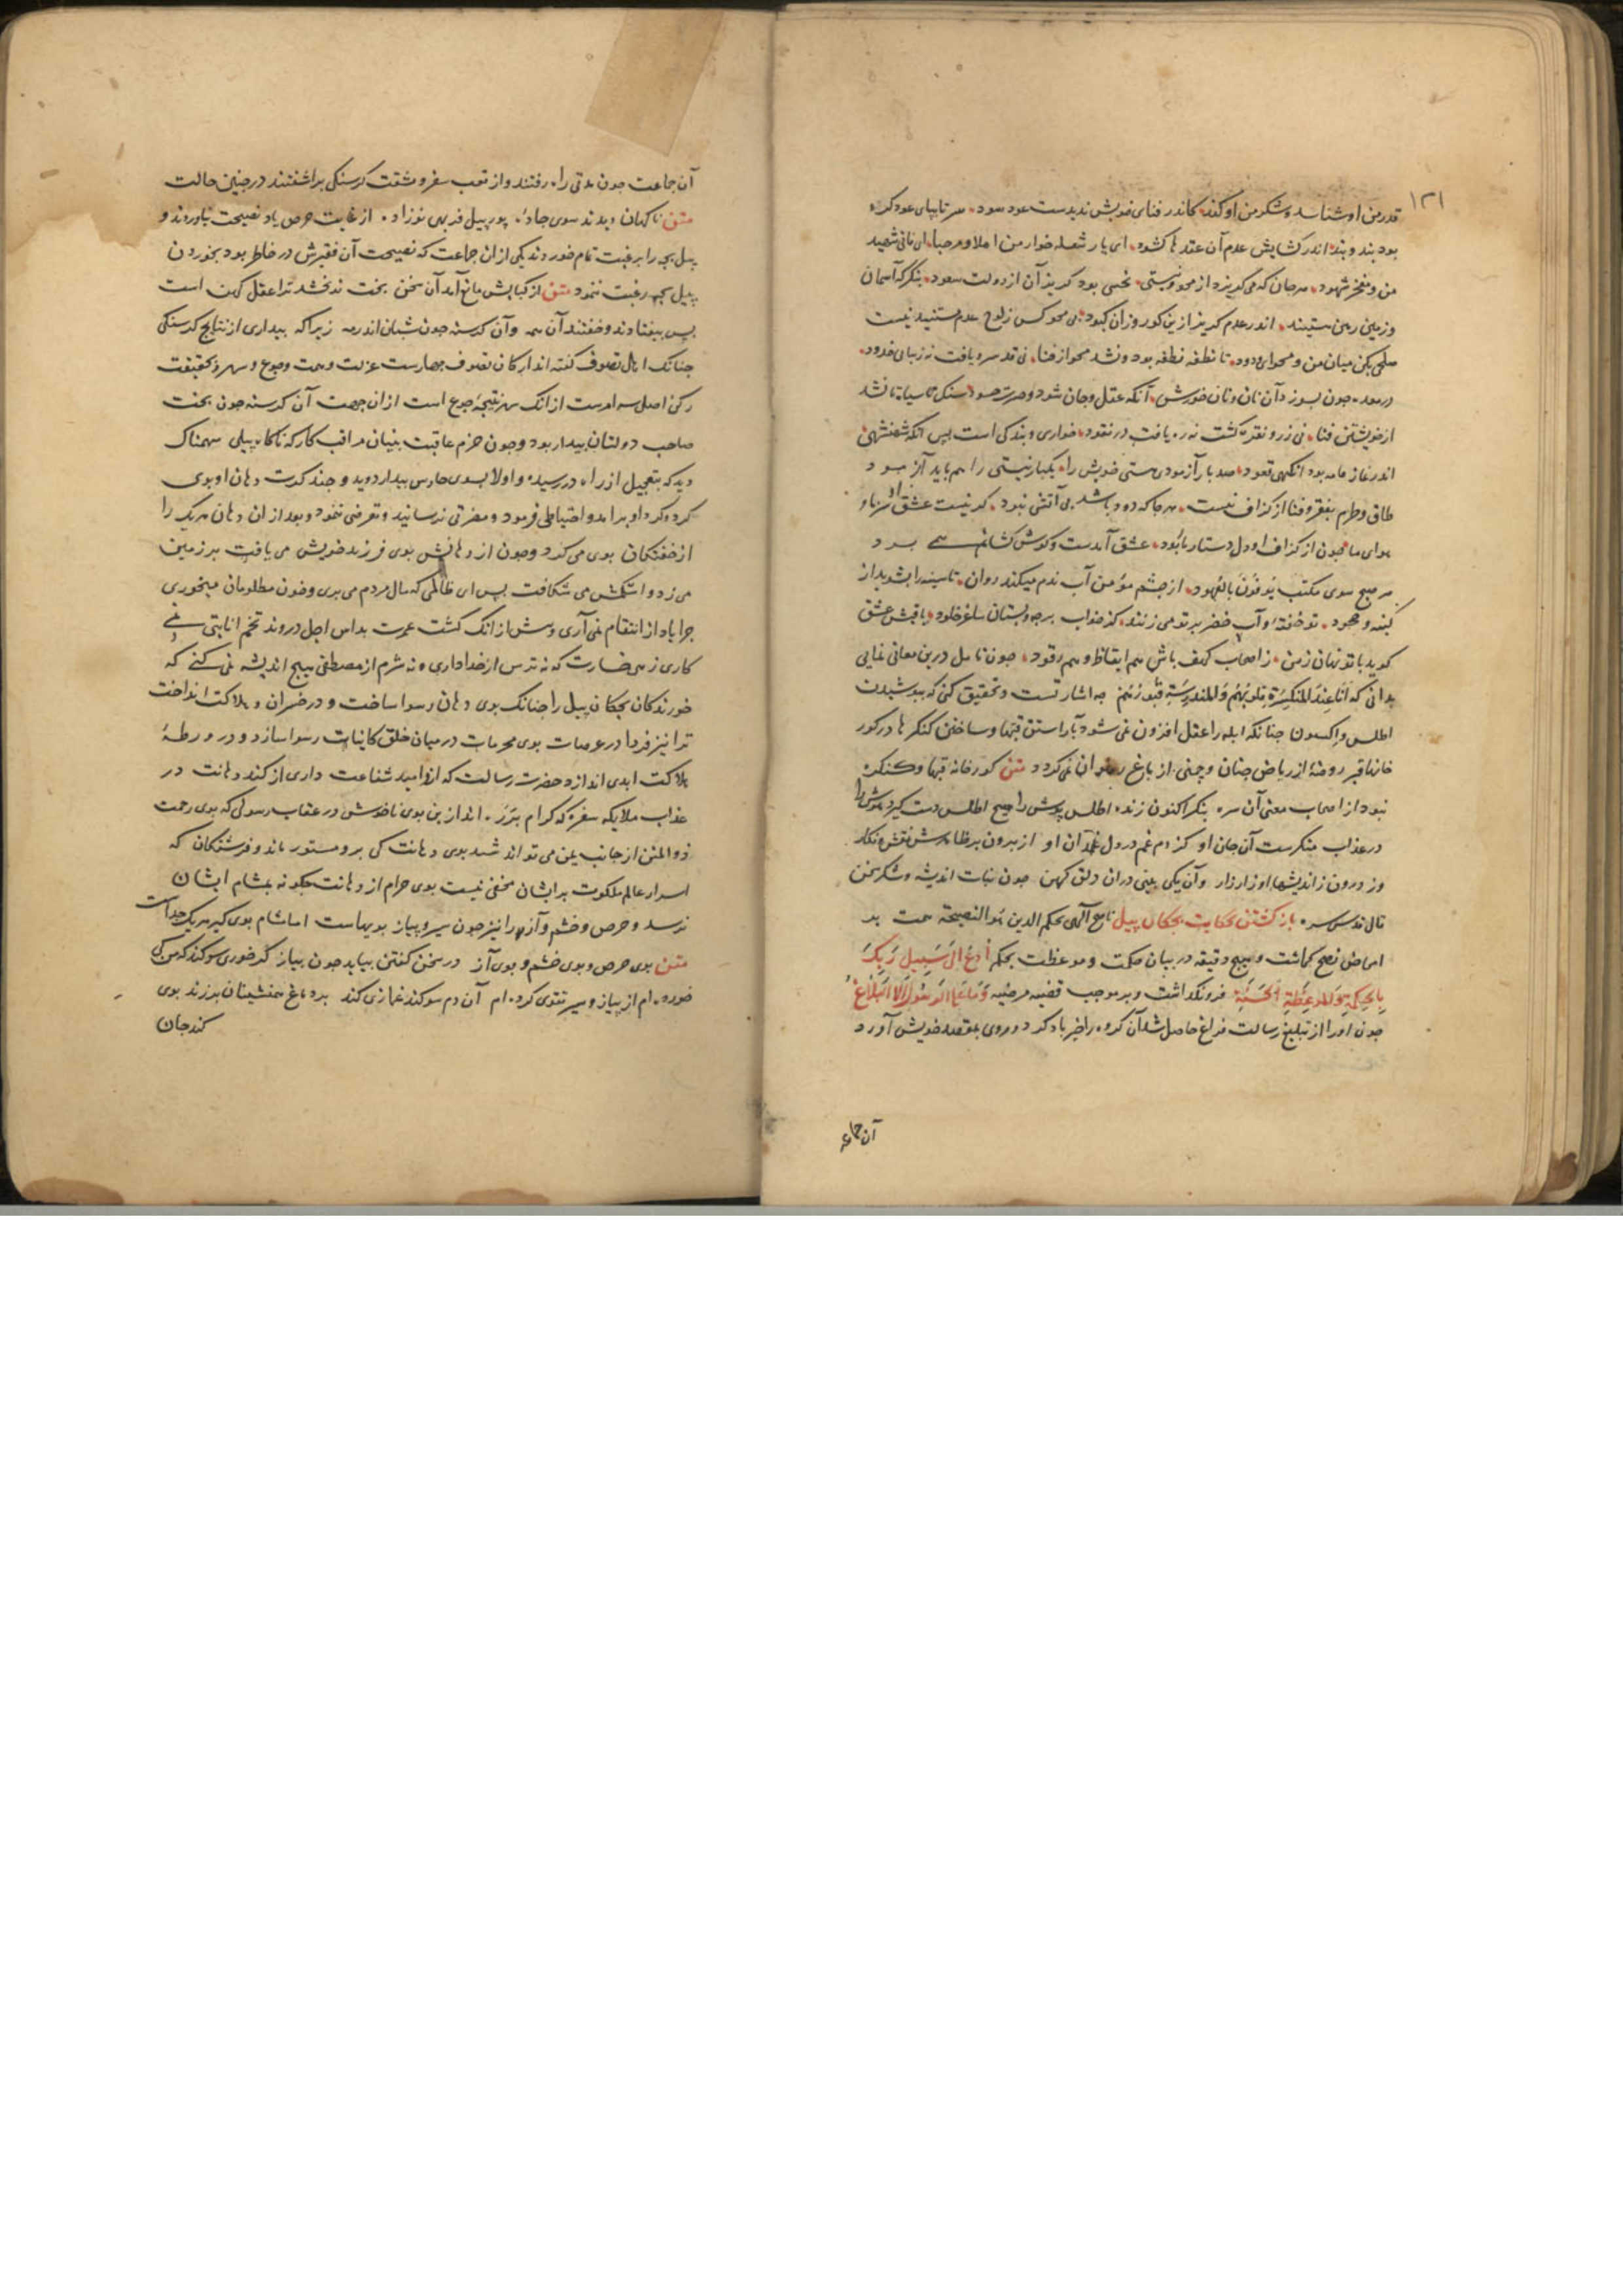 ۱۲۱
قدر من او شناسد و شکر من او کند کاندر فنای خویش ندیدست عود سود سر تا بپای عود گره
بود بند و بند اندر گشایش عدم آن عقدها گشود ای یار شعله خوار من اهلا و مرحبا ای فانی شهید
من و مفخر شهود هر جان که می گریزد از محو و نیستی نحسی بود گریز آن از دولت سعود بنگر که آسمان
و زمین رهن هستیند اندر عدم گریز ازین کور و زان کبود بی محو کس ز لوح عدم مستفید نیست
صلحی بکن میان من و محو ای ودود تا نطفه نطفه بود و نشد محو از فنا نی قد سرو یافت نه زیبای خدود
در معده چون بسوزد آن نان و نان خورش آنکه عقل و جان شود و حسرت حسود سنک سیاه تا نشد
از خویشتن فنا نی زر و نقره گشت نه ره یافت در نقود خواری و بندگی است پس آنکه شهنشهی
اندر نماز قامه بود آنگهی قعود صد بار آزمودی هستی خویش را یکبار نیستی را هم باید آزمود
طاق و طرم بفقر و فنا از گزاف نیست هر جا که دود باشد بی آتشی نبود گر نیست عشق را سر ما و
هوای ما چون از گزاف او دل دستار ما ربود عشق آمدست و گوش کشانمان همی برد
هر صبح سوی مکتب یوفون بالعهود از چشم مؤمن آب ندم میکند روان تا سینه را بشوید از
کینه و جحود تو خفتهٔ و آب خضر بر تو می زنند کز خواب برجه و بستان ساغر خلود باقیش عشق
گوید با تو نهان ز من ز اصحاب کهف باش هم ایقاظ و هم رقود چون تامل درین معانی نمایی
بدانی که انا عند المنکسرة قلوبهم والمندرسة قبورهم چه اشارتست و تحقیق کنی که بپوشیدن
اطلس و اکسون چنانکه ابله را عقل افزون نمی شود بآراستن قبها و ساختن کنگرها در گور
خانها قبر روضهٔ از ریاض جنان و چمنی از باغ رضوان نمی گردد متن گورخانه قبها و کنگره
نبود از اصحاب معنی آن سره بنگر اکنون زنده اطلس پوش را هیچ اطلس دست گیرد هوش را
در عذاب منکرست آن جان او کژدم غم در دل غمدان او از برون بر ظاهرش نقش و نگار
وز درون ز اندیشها او زار زار و آن یکی بینی در آن دلق کهن چون نبات اندیشه و شکر سخن
قال قدس سره باز گشتن بحکایت بچکان پیل ناصح آگهی بحکم الدین هو النصیحة همت بر
امحاض نصح گماشت و هیچ دقیقه در بیان حکمت و موعظت بحکم ادع الی سبیل ربک
بالحکمة والموعظة الحسنة فرو نگذاشت و بر موجب قضیه مرضیه وما علی الرسول الا البلاغ
چون او را از تبلیغ رسالت فراغ حاصل شد آن گروه را خیر باد کرد و روی بمقصد خویش آورد
آن جماعه
آن جماعت چون مدتی راه رفتند و از تعب سفر و مشقت گرسنگی برآشفتند در چنین حالت
متن ناگهان دیدند سوی جادهٔ پور پیل فربهی نوزاده از غایت حرص یاد نصیحت نیاوردند و
پیل بچه را برغبت تمام خوردند یکی از ان جماعت که نصیحت آن فقیرش در خاطر بود بخوردن
پیل بچه رغبت ننمود متن از کبابش مانع آمد آن سخن بخت نو بخشد ترا عقل کهن است
پس بیفتادند و خفتند آن همه و آن گرسنه چون شبان اندر رمه زیرا که بیداری از نتایج گرسنگی
چنانک اهل تصوف گفته اند ارکان تصوف چهارست عزلت و صمت و جوع و سهر و بحقیقت
رکن اصل سه امرست از انک سهر نتیجهٔ جوع است از ان جهت آن گرسنه چون بخت
صاحب دولتان بیدار بود و چون حزم عاقبت بینان مراقب کار که ناگاه پیلی سهمناک
دید که بتعجیل از راه در رسیده و اولا بسوی حارس بیدار دوید و چند کرت دهان او بوی
کرد و گرد او برآمد و احتیاطی فرمود و مضرتی نرسانید و تعرضی ننمود و بعد از ان دهان هر یک را
از خفتگان بوی می کرد و چون از دهانش بوی فرزند خویش می یافت بر زمین
می زد و اشکمش می شکافت پس ای ظالمی که مال مردم می بری و خون مظلومان میخوری
چرا یاد از انتقام نمی آری و پیش از انک کشت عمرت بداس اجل دروند تخم انابتی نمی
کاری زهی خسارت که نه ترس از خدا داری و نه شرم از مصطفی هیچ اندیشه نمی کنی که
خورندگان بچکان پیل را چنانک بوی دهان رسوا ساخت و در خسران و هلاکت انداخت
ترا نیز فردا در عرصات بوی محرمات در میان خلق کاینات رسوا سازد و در ورطهٔ
هلاکت ابدی اندازد حضرت رسالت که ازو امید شفاعت داری از گند دهانت در
عذاب ملایکه سفره که کرام برره اند ازین بوی ناخوش در عقاب رسولی که بوی رحمت
ذو المنن از جانب یمن می تواند شنید بوی دهانت کی برو مستور ماند و فرشتگان که
اسرار عالم ملکوت بر ایشان مخفی نیست بوی حرام از دهانت چگونه بمشام ایشان
نرسد و حرص و خشم و آز را نیز چون سیر و پیاز بویهاست اما شام بوی گیر هر یک جداست
متن بوی حرص و بوی خشم و بوی آز در سخن گفتن بیاید چون پیاز گر خوری سوگند کمن کی
خورده ام از پیاز و سیر تقوی کرده ام آن دم سوگند غمازی کند بر دماغ همنشینان برزند بوی
کند جان